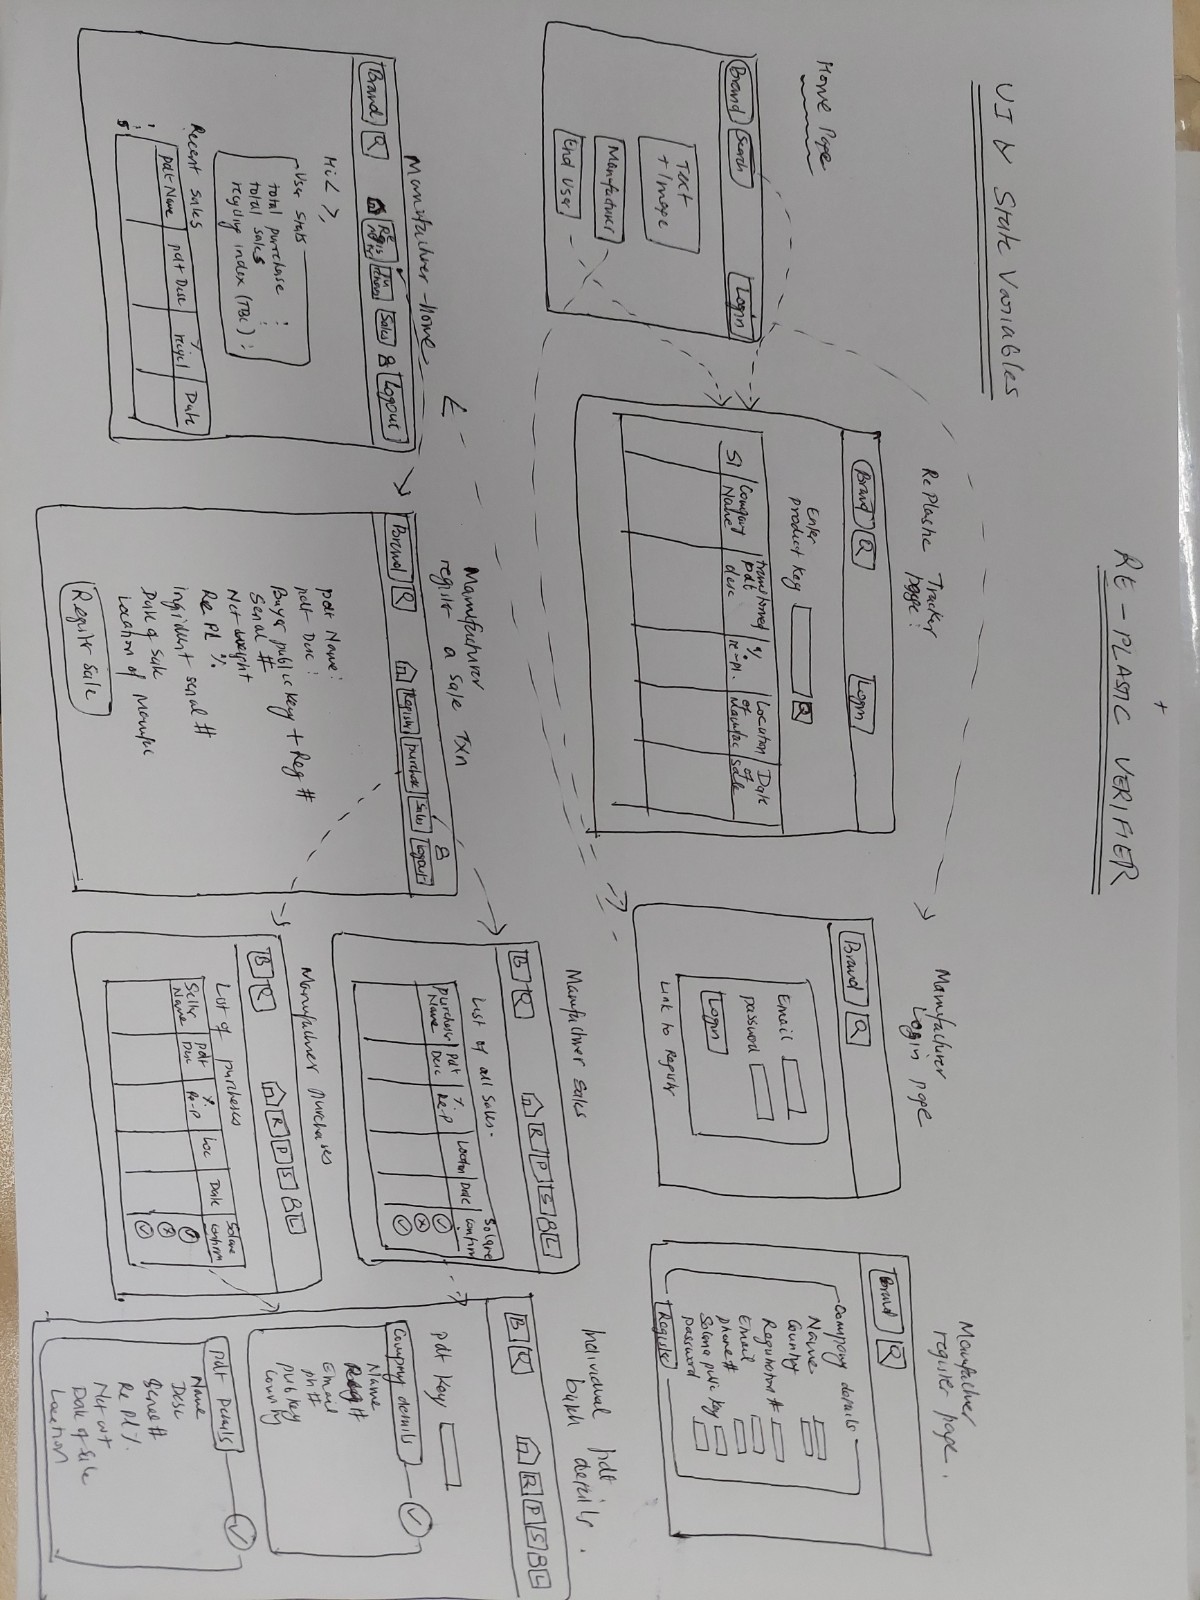 RE-PLASTIC VERIFIER
UI & State Variables
Home Page
Brand
Search
Login
Text
+ Image
Manufacturer
End User
RePlastic Tracker
page:
Brand
Q
Login
Enter
product key
Q
Sl
Company
Name
transformed
pdt
desc
%
re-pl.
Location
of
Manufac
Date
of
Sale
Manufacturer
Login page
Brand
Q
Email
password
Login
Link to Register
Manufacturer
register page.
Brand
Q
Company details
Name
Country
Registration #
Email
phone #
Solana public key
password
Register
Manufacturer Home
Brand
Q
Sales
Logout
Hi < >,
User Stats
total purchase :
total sales :
recycling index (TBC) :
Recent sales
pdt Name
pdt Desc
%
recycl
Date
1
5
Manufacturer
register a sale TXn
Brand
Q
Register
purchase
Sales
Logout
pdt Name:
pdt Desc:
Buyer public key + Reg #
Serial #
Net weight
Re Pl %
Ingridient serial #
Date of Sale
Location of Manufac
Register Sale
Manufacturer Sales
B
Q
R
P
S
L
List of all Sales.
purchaser
Name
Pdt
Desc
%
Re-P
Location
Date
Solana
Confirm
Manufacturer purchases
B
Q
R
P
S
L
List of purchases
Seller
Name
pdt
Desc
%
Re-P
Loc
Date
Solana
Confirm
Individual pdt
batch details.
B
Q
R
P
S
L
Pdt Key
Company details
Name
Reg #
Email
ph #
pub key
Country
Pdt Details
Name
Desc
Serial #
Re Pl %
Net wt
Date of Sale
Location